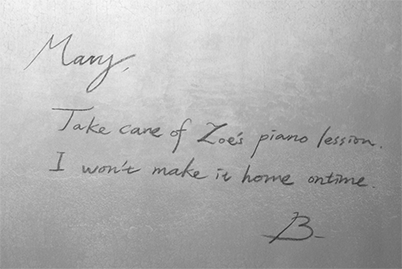 Mary,
Take care of Zoe's piano lession.
I won't make it home ontime.
B.